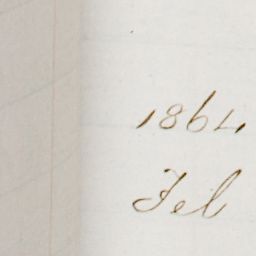 1864
Feb